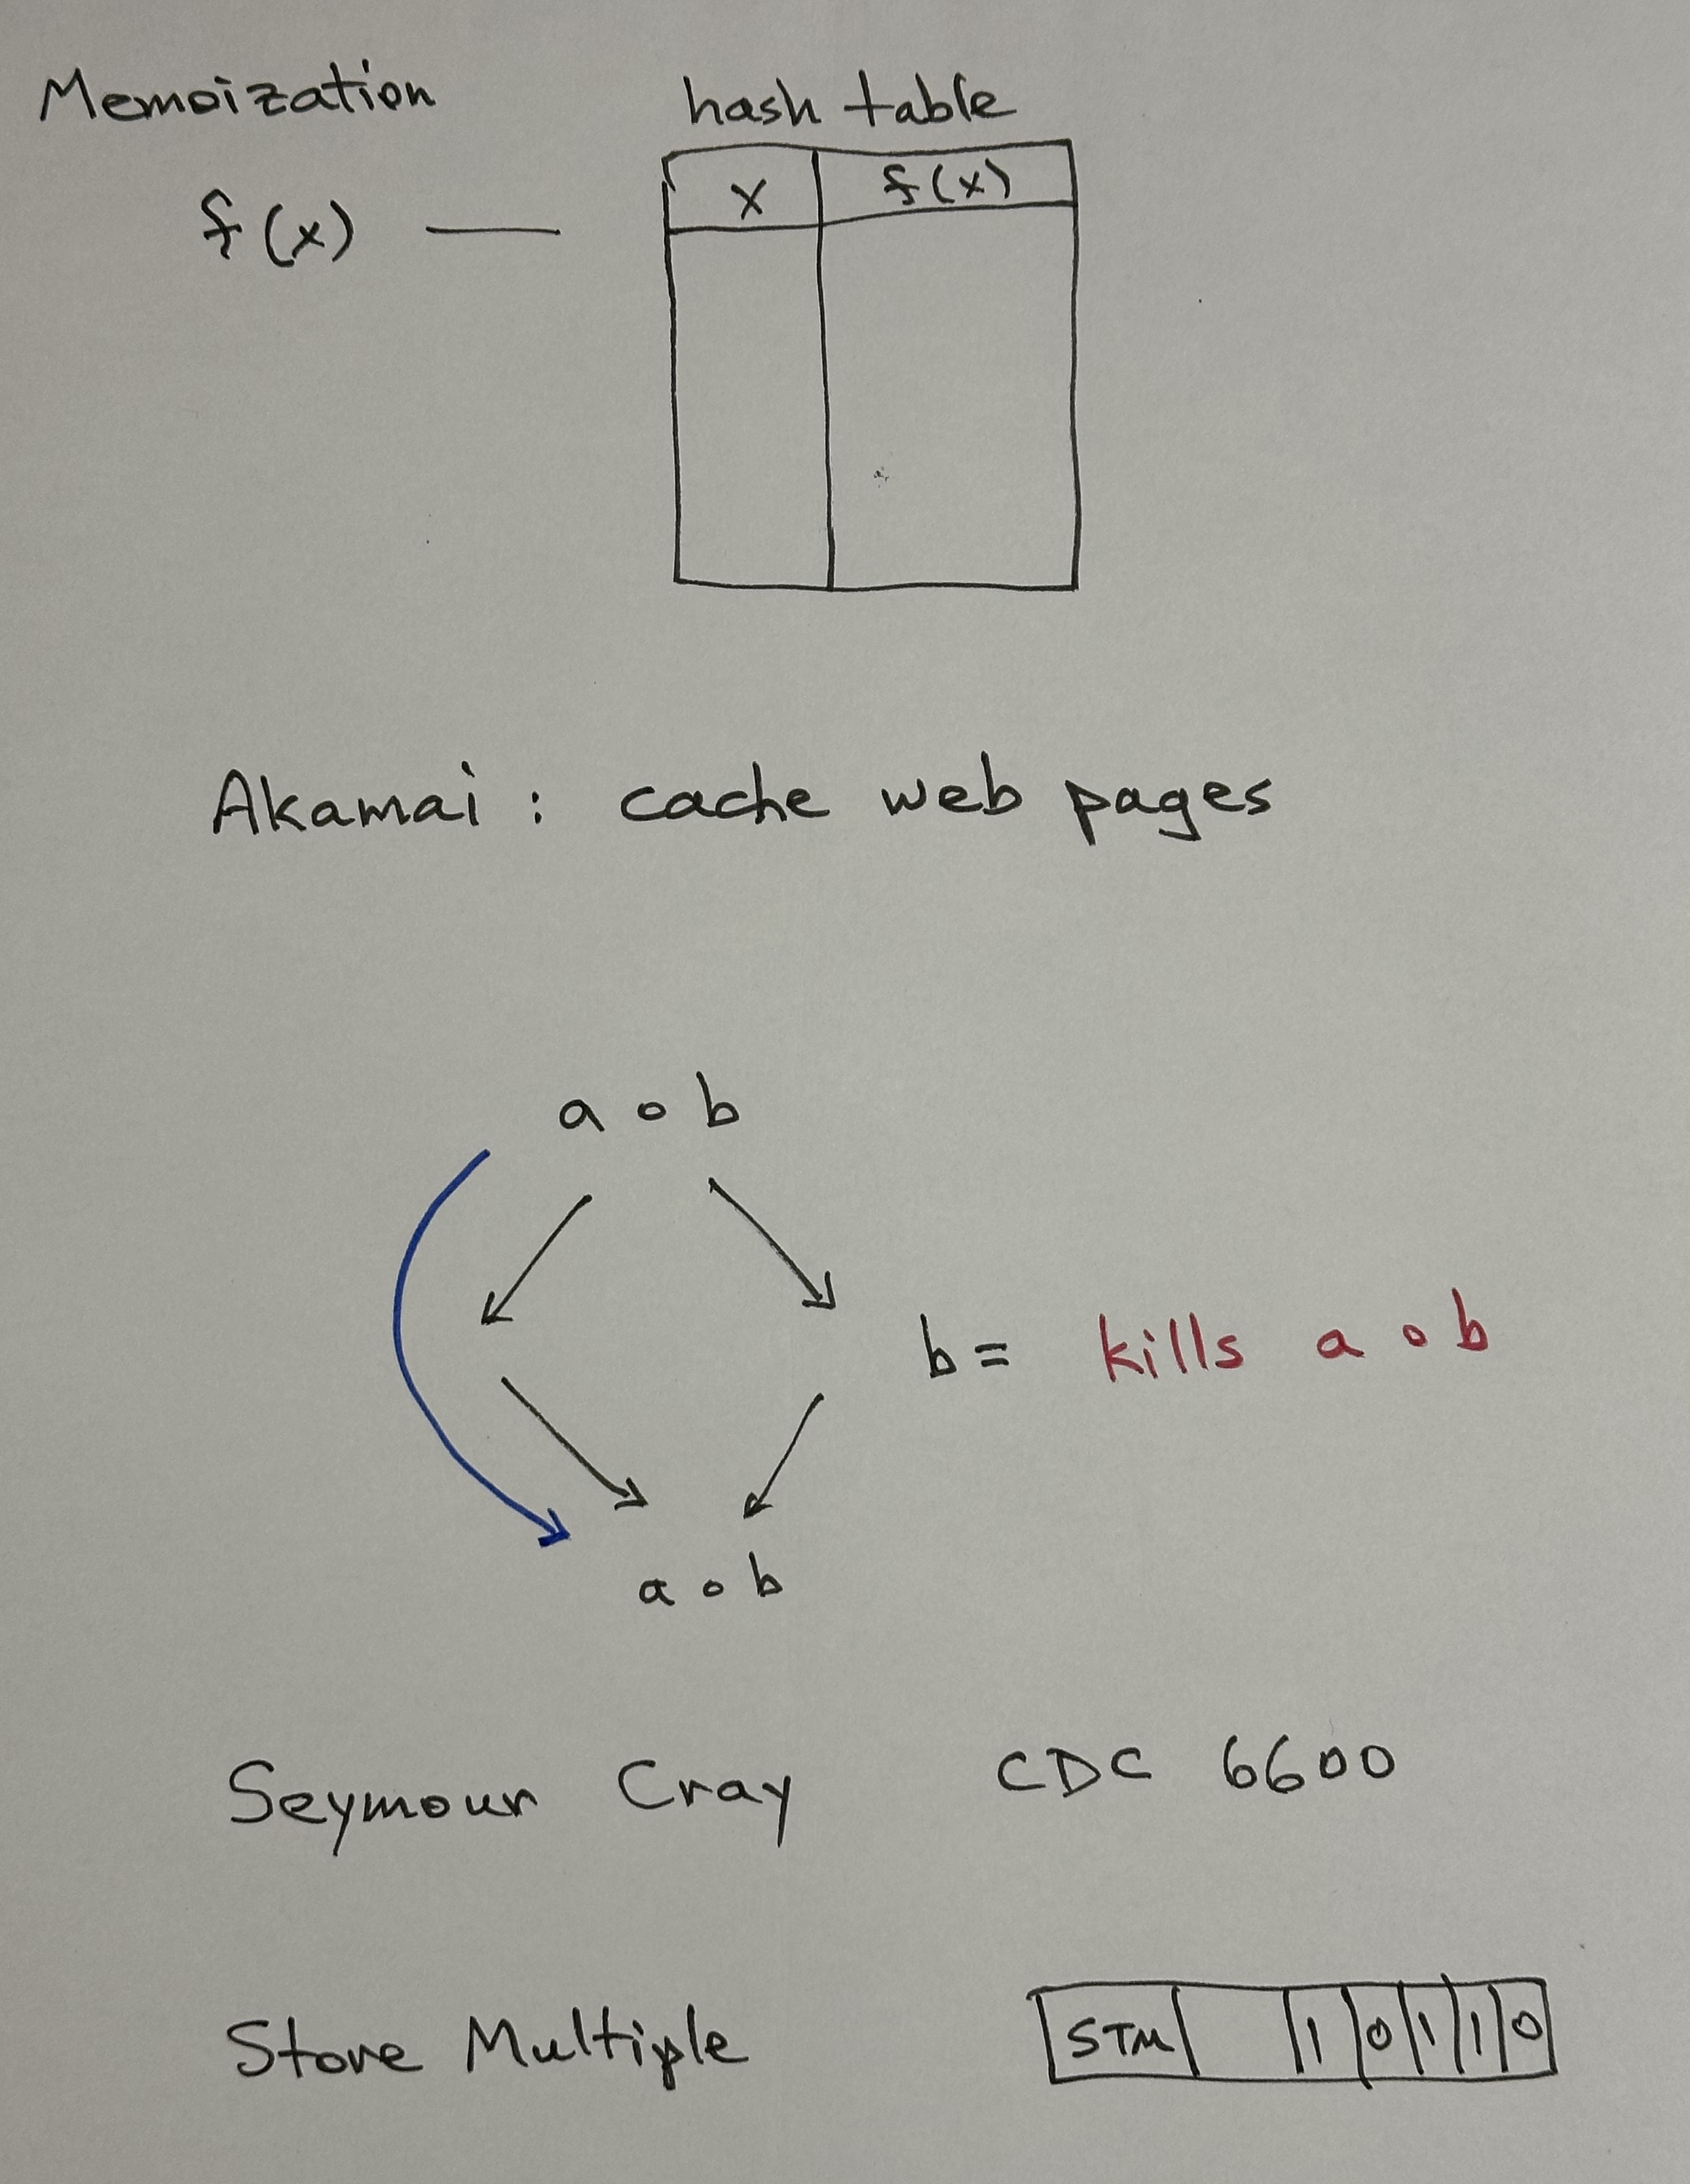 Memoization hash table
x f(x)
f(x) —
Akamai : cache web pages
a o b
b = kills a o b
a o b
Seymour Cray CDC 6600
Store Multiple STM 1 0 1 1 0